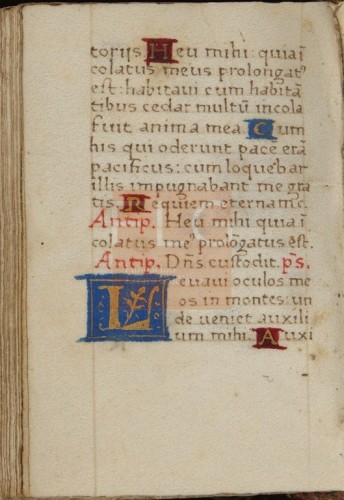 toriis. Heu mihi: quia ī
colatus meus prolongat⁹
est: habitavi cum habitā
tibus cedar multū incola
fuit anima mea. Cum
his qui oderunt pacē erā
pacificus: cum loquebar
illis impugnabant me gra
tis. Requiem eternam c.
Antip. Heu mihi quia ī
colatus me⁹ prolōgatus est.
Antip. Dn̄s custodit. ps̄.
Levavi oculos me
os in montes: un
de veniet auxili
um mihi. Auxi